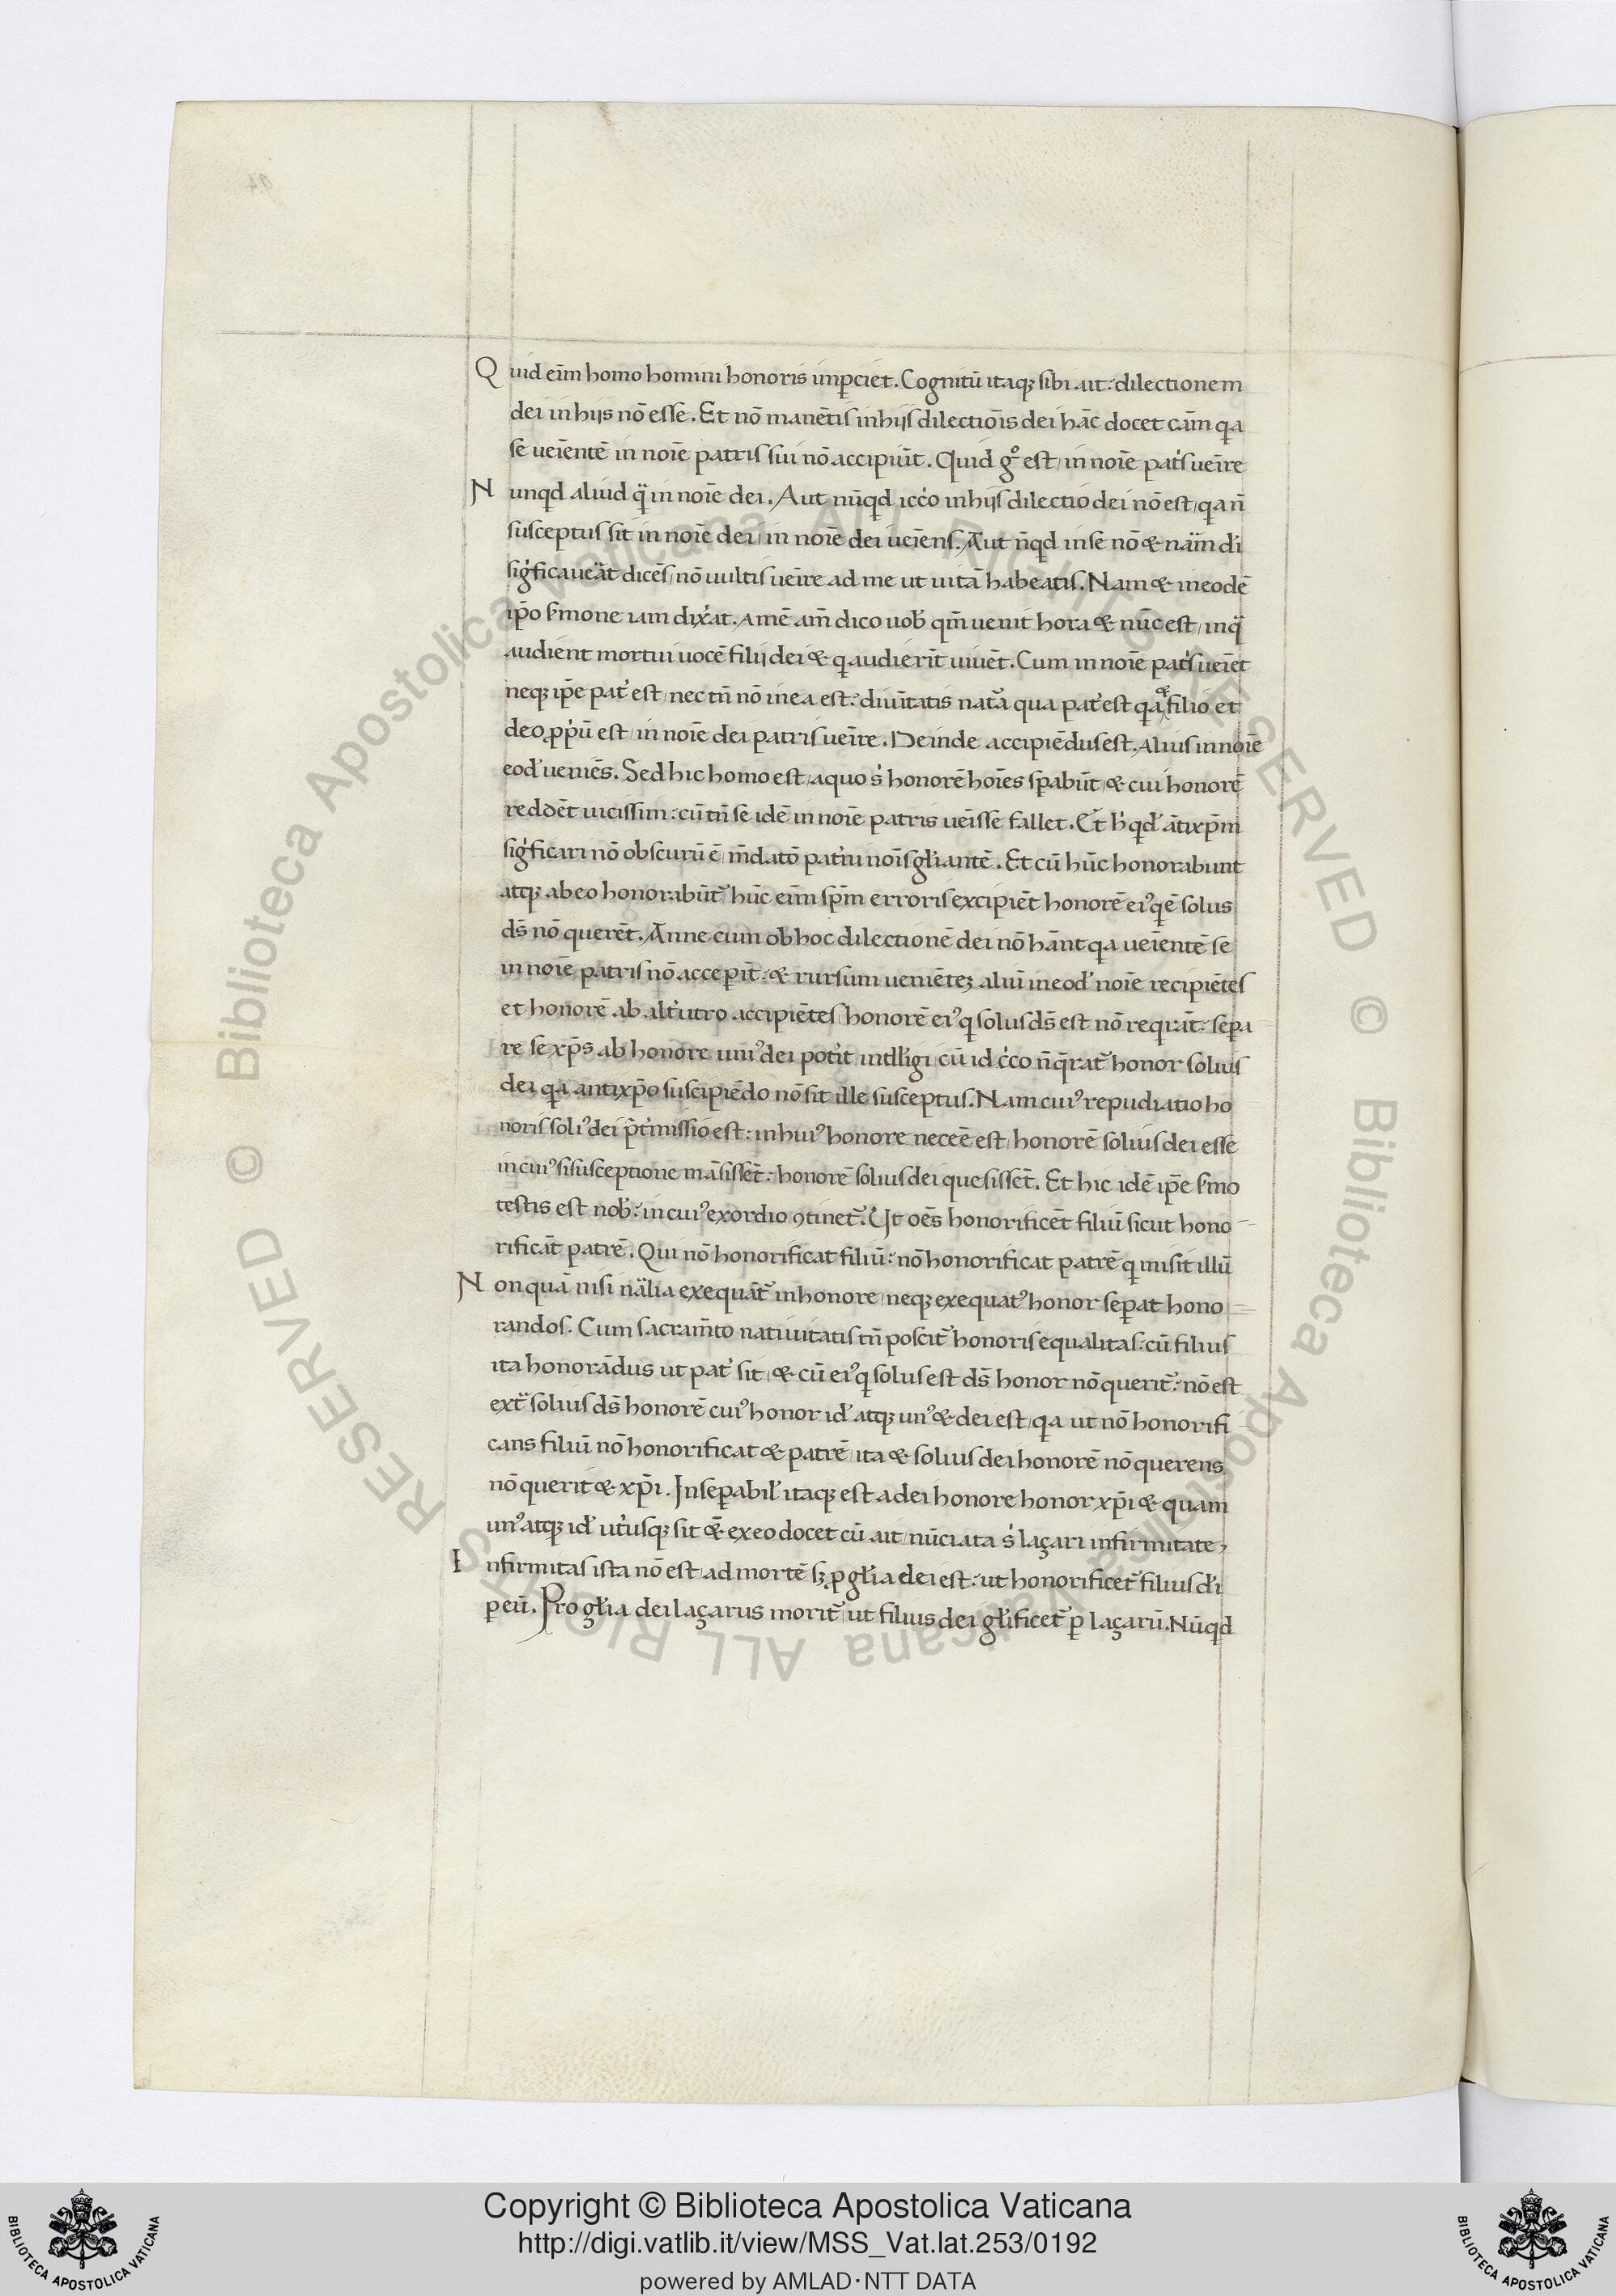 Quid eīm homo homini honoris imp̄ciet. Cognitū itaqꝫ sibi ait: dilectionem
dei in hijs nō esse. Et nō manētis in hijs dilectiōis dei hāc docet cām qa
se ueīentē in noīe patris sui nō accipiūt. Quid gͦ est in noīe patͥs ueīre
Nunqd aliud q̈ in noīe dei. Aut nūqd iccͦo in hijs dilectio dei nō est qa n̄
susceptus sit in noīe dei in noīe dei ueīens. Aut n̄qd in se nō & nām di
sigͥficaueāt dicēs nō uultis ueīre ad me ut uitā habeatis. Nam & in eodē
ip̄o sͬmone iam dixͬat. Amē am̄ dico uob̓ qm̄ uenit hora & nūc est in q̈
audient mortui uocē filij dei & q audierīt uiuēt. Cum in noīe patͥs ueīet
neqꝫ ip̄e pat̓ est nec tn̄ nō in ea est: diuītatis natͬā qua pat̓ est qa & filio et
deo ꝓpͥū est in noīe dei patris ueīre. Deinde accipiēdus est. Alius in noīe
eod̓ ueniēs. Sed hic homo est a quo s̓ honorē hoīes sp̄abūt & cui honorē
reddēt uicissim: cū tn̄ se idē in noīe patris ueīsse fallet. Et h̓ qd̓ ātixp̄m
sigͥficari nō obscurū ē m̄datō patͥū noīs gl̓iantē. Et cū hūc honorabunt
atqꝫ ab eo honorabūt̓ hūc eīm sp̄m erroris excipiēt honorē eiꝰ qē solus
ds̄ nō querēt. Anne cum ob hoc dilectionē dei nō hānt qa ueīentē se
in noīe patris nō acceperīt: & rursum ueniētez aliū in eod̓ noīe recipiētes
et honorē ab alt̓utro accipiētes honorē eiꝰ q solus ds̄ est nō reqrāt: sepa
re se xp̄s ab honore uniꝰ dei potͥit intll̓igi cū id cͥco n̄ q̄rat̓ honor solius
dei qa antixp̄o suscipiēdo nō sit ille susceptus. Nam cuiꝰ repudiatio ho
noris soliꝰ dei p̄tͬmissio est: in huiꝰ honore neceē est honorē solius dei esse
in cuiꝰ si susceptione māsissēt: honorē solius dei quesissēt. Et hic idē ip̄e sͬmo
testis est nob̓: in cuiꝰ exordio ꝯtinet̓. Ut oēs honorificēt filiū sicut hono
rificāt patrē. Qui nō honorificat filiū: nō honorificat patrē q misit illū
Non quā nisi nälia exequāt̓ in honore neqꝫ exequat̓ honor sep̄at hono
randos. Cum sacram̄to natiuitatis tn̄ poscit̓ honoris equalitas: cū filius
ita honorādus ut pat̓ sit & cū eiꝰ q solus est ds̄ honor nō querit̓: nō est
extͣ solius ds̄ honorē cuiꝰ honor id̓ atqꝫ unꝰ & dei est qa ut nō honorifi
cans filiū nō honorificat & patrē ita & solius dei honorē nō querens
nō querit & xp̄i. Insep̄abil̓ itaqꝫ est a dei honore honor xp̄i & quam
unꝰ atqꝫ id̓ ut̓usqꝫ sit & ex eo docet cū ait nūciata s̓ laçari infirmitate,
Infirmitas ista nō est ad mortē sꝫ ꝓ gl̓ia dei est: ut honorificet̓ filius di
p̄ eū. Pro gl̓ia dei laçarus morit̓ ut filius dei gl̓ificet̓ p̄ laçarū. Nūqd
Copyright © Biblioteca Apostolica Vaticana
http://digi.vatlib.it/view/MSS_Vat.lat.253/0192
powered by AMLAD·NTT DATA
BIBLIOTECA APOSTOLICA VATICANA
BIBLIOTECA APOSTOLICA VATICANA
© Biblioteca Apostolica Vaticana ALL RIGHTS RESERVED © Biblioteca Apostolica Vaticana ALL RIGHTS RESERVED